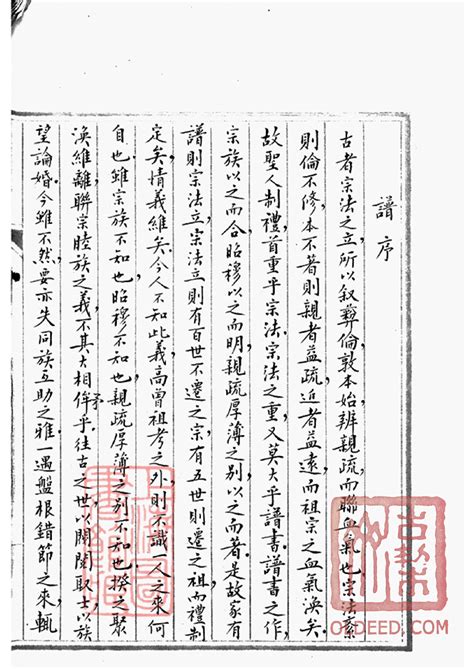 譜序
古者宗法之立所以叙彝倫敦本始辨親疏而聯血氣也宗法紊
則倫不修本不著則親者益疏近者益遠而祖宗之血氣渙矣
故聖人制禮首重乎宗法宗法之重又莫大乎譜書譜書之作
宗族以之而合昭穆以之而明親疏厚薄之別以之而著是故家有
譜則宗法立宗法立則有百世不遷之宗有五世則遷之祖而禮制
定矣情義維矣今人不知此義高曾祖考之外則不識一人之來何
自也雖宗族不知也昭穆不知也親疏厚薄之別不知也揆之聚
渙維離聯宗睦族之義不其大相侔乎往古之世以閥閱取士以族
矛
望論婚今雖不然要亦失同族互助之雅一遇盤根錯節之來輒
OUDEED.COM